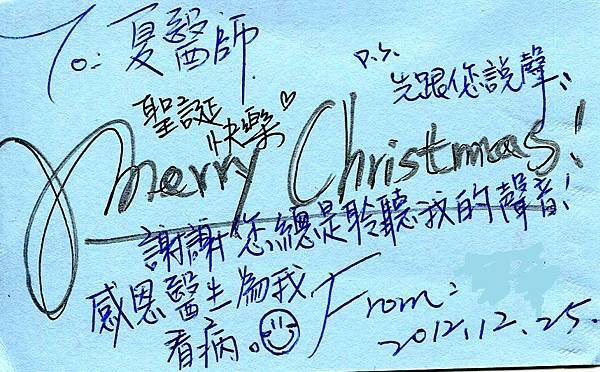 To: 夏醫師
P.S.
先跟您說聲:
聖誕
快樂♡
Merry Christmas!
謝謝您總是聆聽我的聲音!
感恩醫生為我
看病。☺
From:
2012.12.25.